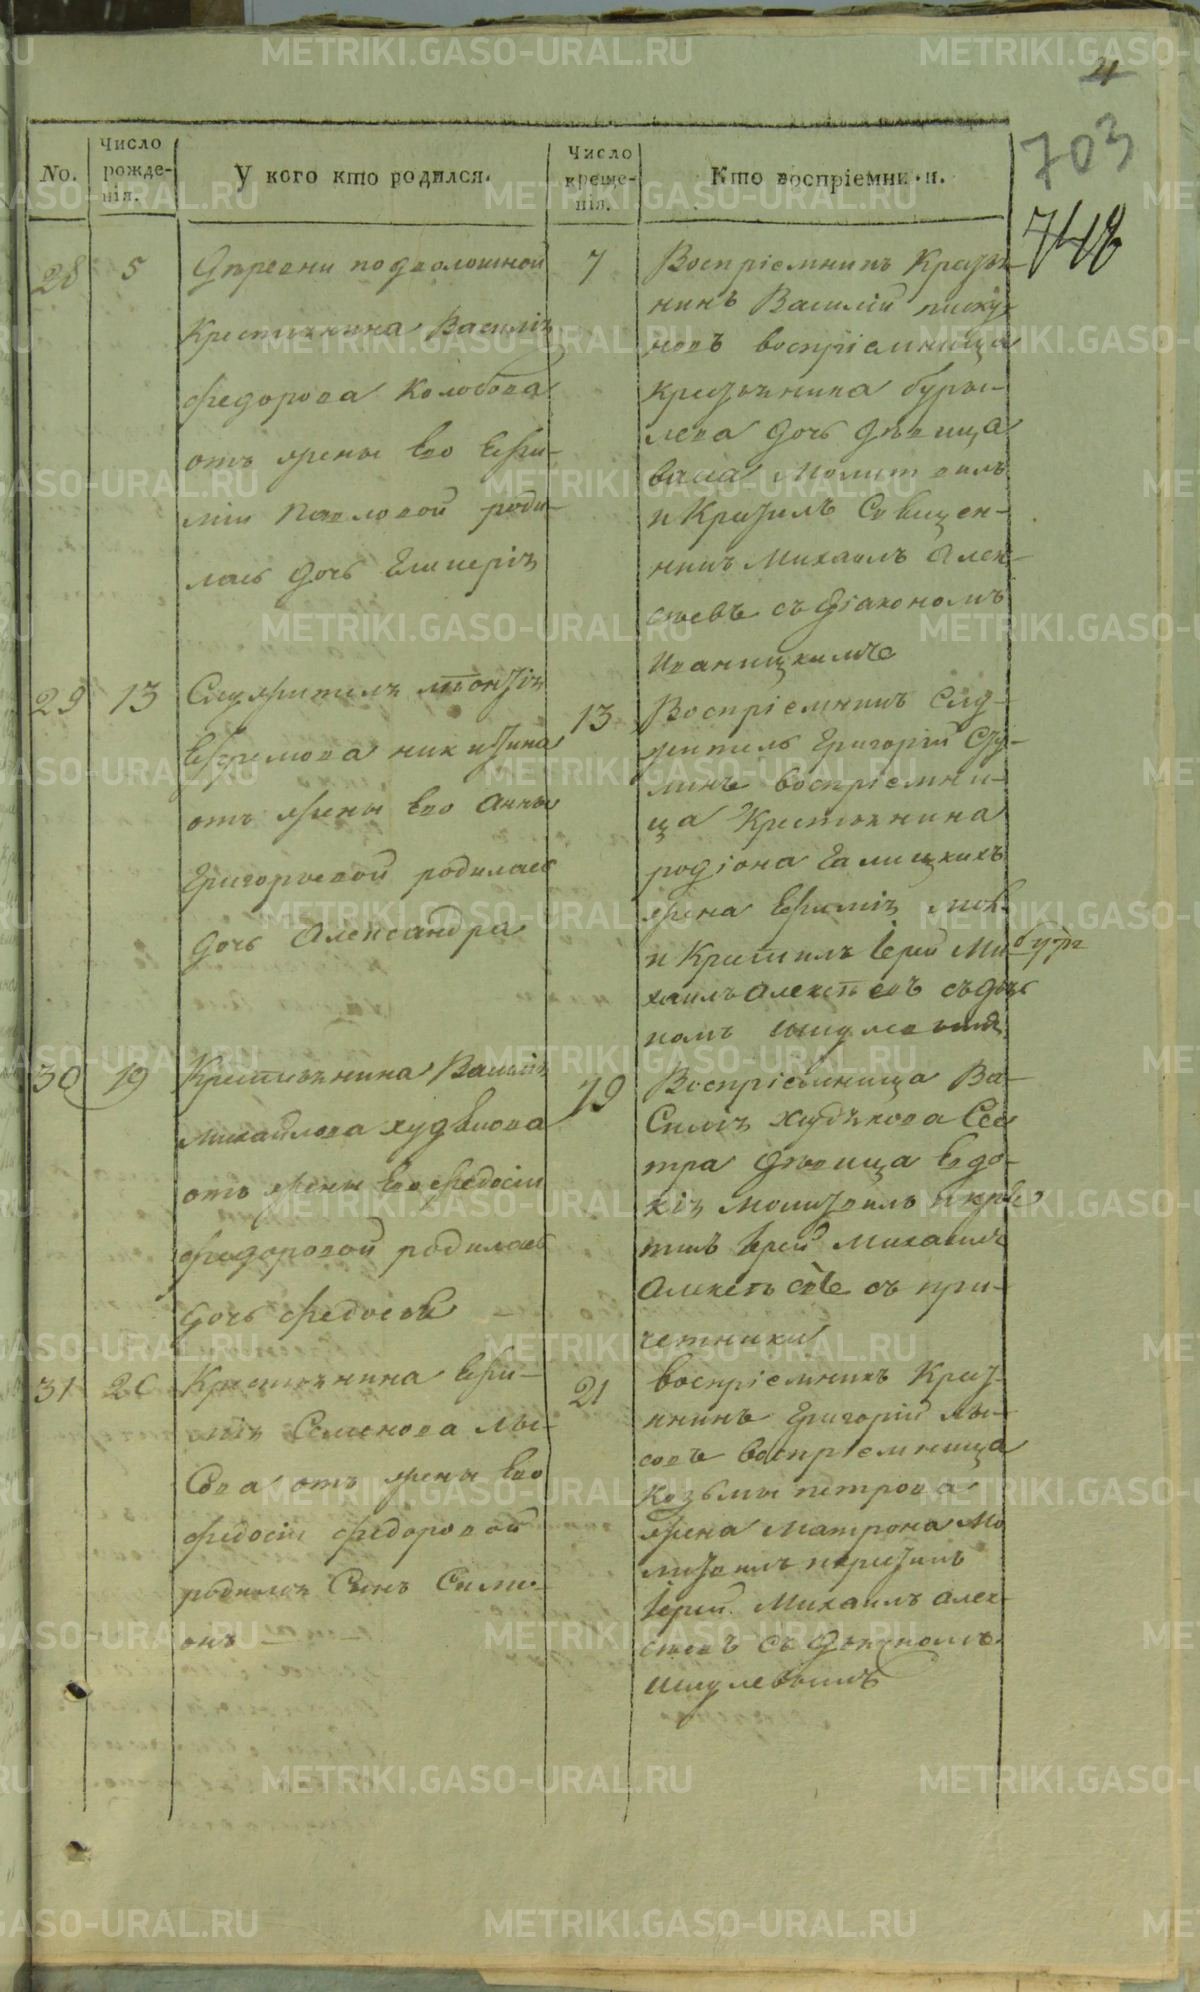 4
703
748
No.
Число рожде-нія.
У кого кто родился.
Число креще-нія.
Кто воспріемники.
28
5
Деревни подволошной
Крестьянина Василія
федорова Колобова
отъ жены Его Ефи-
міи Павловой роди-
лась дочь Гликерія
7
Воспріемникъ Крестья-
нинъ Василій пискун
новъ воспріемница
Крестьянина буры-
лова дочь дѣвица
васса Молитвилъ
и Крестилъ Священ-
никъ Михаилъ Алек-
сѣевъ съ діакономъ
Иваницкимъ
29
13
Служителя
Ефремова никитина
отъ жены Его Анны
Григорьевой родилась
дочь Александра
13
Воспріемникъ Слу-
житель Григорій
воспріемни-
ца Крестьянина
родіона Галицкихъ
жена Ефимія мол.
и Крестилъ Іерей Ми-
хаилъ Алексѣевъ съ дья
комъ
30
19
Крестьянина Василія
михайлова худякова
отъ жены Его федосіи
федоровой родилась
дочь федосья
19
Воспріемница Ва-
силія Худякова Сес
тра дѣвица Евдо-
кія Молитвилъ и кре
тилъ Іерей Михаилъ
Алексѣевъ съ при-
четники
31
20
Крестьянина Ефи-
мія Семенова лы-
сова отъ жены Его
федосіи федоровой
родился Сынъ Симе-
онъ
21
воспріемникъ Крест-
янинъ Григорій лы-
совъ воспріемница
Козьмы петрова
жена Матрона Мо
литвилъ и крестилъ
Іерей Михаилъ алек-
сѣевъ съ дьякономъ
METRIKI.GASO-URAL.RU